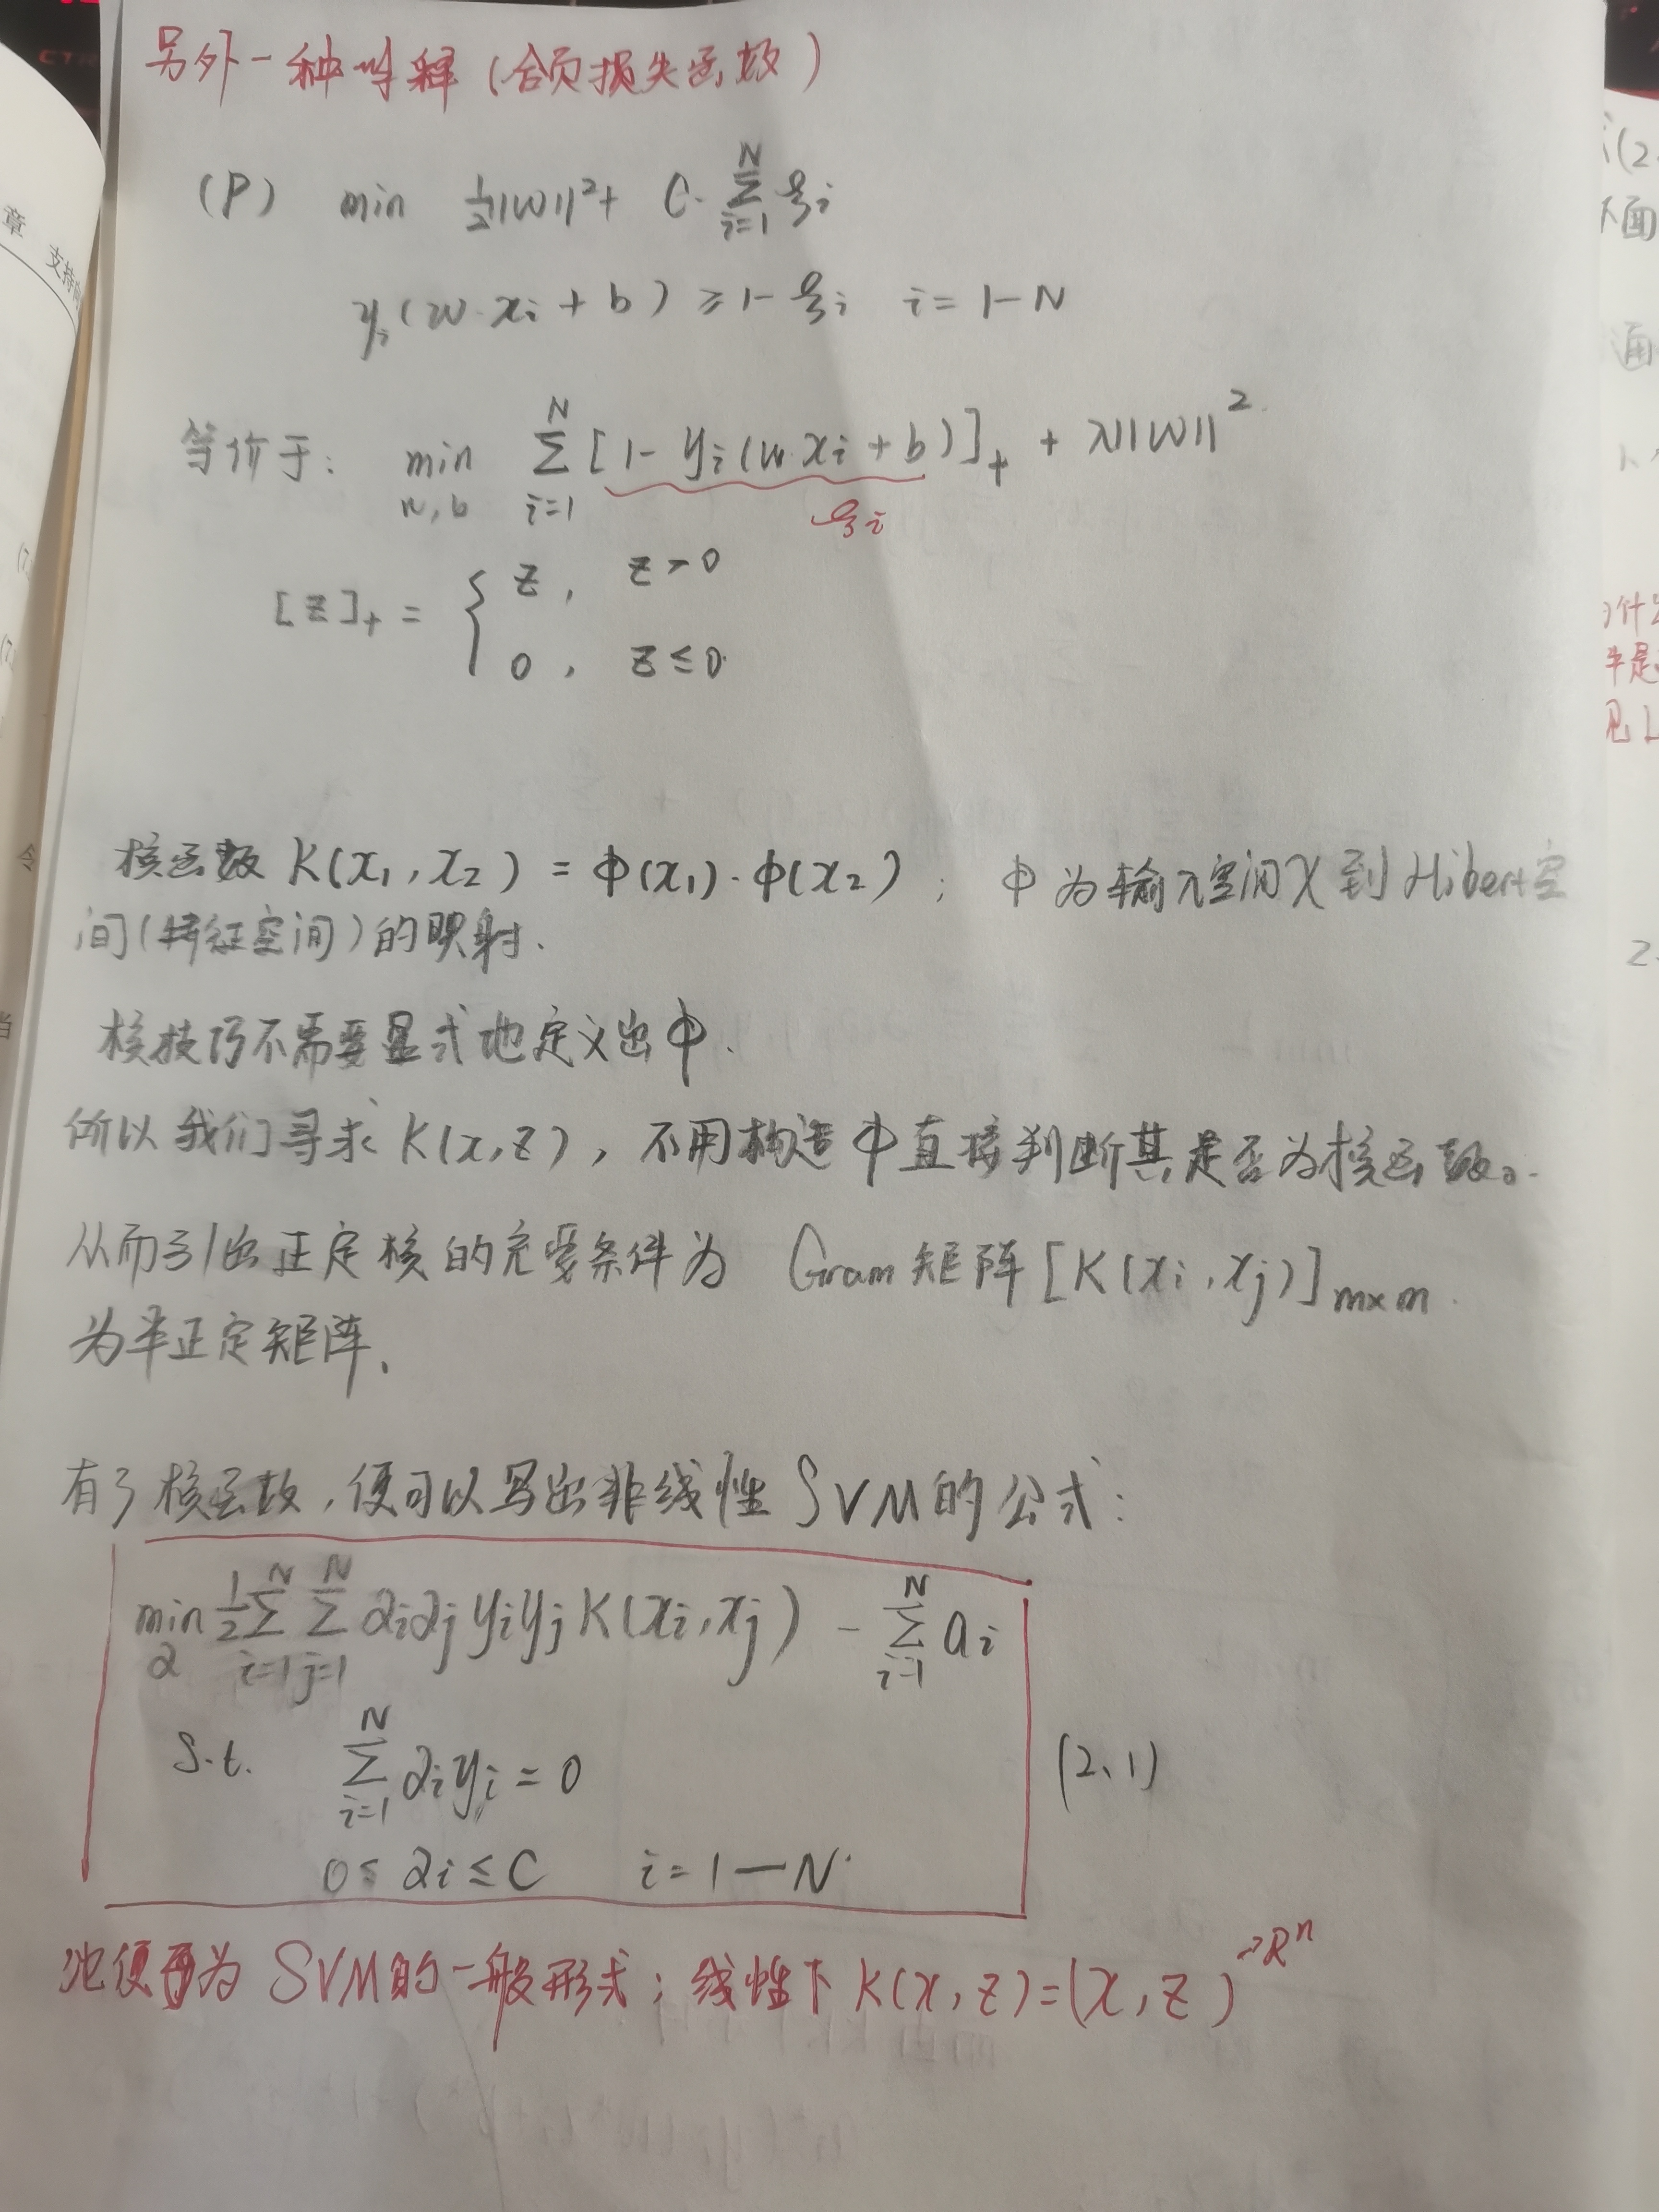 另外一种解释(合页损失函数)
(P) min ½||w||²+ C·∑_{i=1}^{N} ξᵢ
yᵢ(w·xᵢ+b)≥1-ξᵢ i=1-N
等价于: min_{w,b} ∑_{i=1}^{N} [1-yᵢ(w·xᵢ+b)]₊ + λ||w||²
ξᵢ
[z]₊ = { z, z>0
0, z≤0
核函数 K(x₁,x₂)=φ(x₁)·φ(x₂); φ为输入空间χ到Hibert空
间(特征空间)的映射.
核技巧不需要显式地定义出φ.
所以我们寻求K(x,z),不用构造φ直接判断其是否为核函数。
从而引出正定核的充要条件为 Gram矩阵[K(xᵢ,xⱼ)]_{m×m}
为半正定矩阵.
有了核函数,便可以写出非线性SVM的公式:
min_α ½∑_{i=1}^{N}∑_{j=1}^{N} αᵢαⱼyᵢyⱼK(xᵢ,xⱼ) - ∑_{i=1}^{N} aᵢ
s.t. ∑_{i=1}^{N} αᵢyᵢ=0 (2.1)
0≤αᵢ≤C i=1—N.
为 SVM的一般形式;线性下K(x,z)=(x,z)→Rⁿ
章 支持